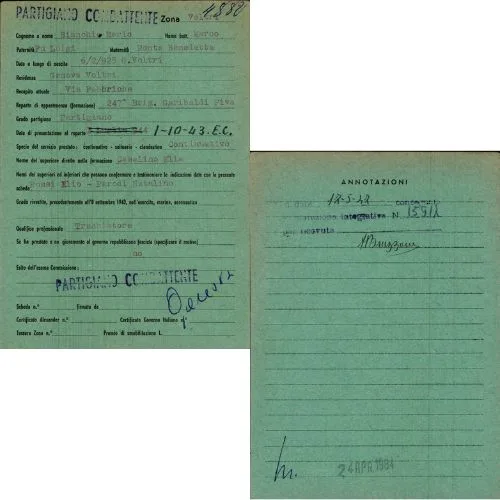 PARTIGIANO COMBATTENTE Zona Voltri
4882
Cognome e nome Bianchi Mario Nome batt. Marco
Paternità Fu Luigi Maternità Monte Benedetta
Data e luogo di nascita 6/2/925 G.Voltri
Residenza Genova Voltri
Recapito attuale Via Fabbriche
Reparto di appartenenza (formazione) 247^ Brig. Garibaldi Piva
Grado partigiano Partigiano
Data di presentazione al reparto 1-10-43. E.C.
Specie del servizio prestato: combattivo - salinario - clandestino Combattivo
Nome del superiore diretto nella formazione Casalino Elia
Nomi dei superiori od inferiori che possono confermare e testimoniare le indicazioni date con la presente
scheda Rossi Elio - Parodi Natalino
Grado rivestito, precedentemente all'8 settembre 1943, nell'esercito, marina, aeronautica
Qualifica professionale Tracciatore
Se ha prestato o no giuramento al governo repubblicano fascista (specificare il motivo)
no
Esito dell'esame Commissione:
PARTIGIANO COMBATTENTE
Scheda n.° Firmata da
Certificato Alexander n.° Certificato Governo Italiano n.°
Tessera Zona n.° Premio di smobilitazione L.
ANNOTAZIONI
12-5-48
integrativa N. 15912
24 APR. 1984